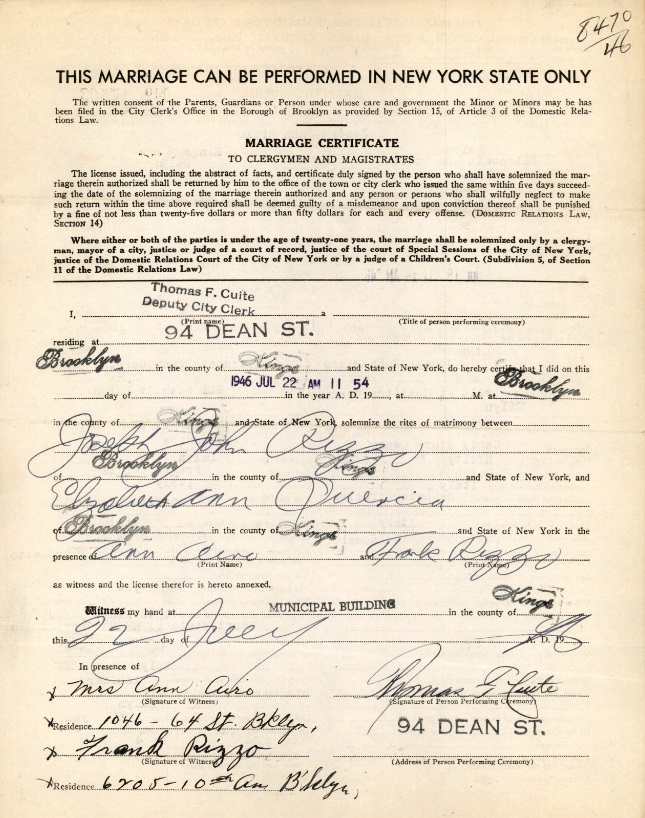 8470
46
THIS MARRIAGE CAN BE PERFORMED IN NEW YORK STATE ONLY
The written consent of the Parents, Guardians or Person under whose care and government the Minor or Minors may be has
been filed in the City Clerk's Office in the Borough of Brooklyn as provided by Section 15, of Article 3 of the Domestic Rela-
tions Law.
MARRIAGE CERTIFICATE
TO CLERGYMEN AND MAGISTRATES
The license issued, including the abstract of facts, and certificate duly signed by the person who shall have solemnized the mar-
riage therein authorized shall be returned by him to the office of the town or city clerk who issued the same within five days succeed-
ing the date of the solemnizing of the marriage therein authorized and any person or persons who shall wilfully neglect to
make such return within the time above required shall be deemed guilty of a misdemeanor and upon conviction thereof shall be punished
by a fine of not less than twenty-five dollars or more than fifty dollars for each and every offense. (DOMESTIC RELATIONS LAW,
SECTION 14)
Where either or both of the parties is under the age of twenty-one years, the marriage shall be solemnized only by a clergy-
man, mayor of a city, justice or judge of a court of record, justice of the court of Special Sessions of the City of New York,
justice of the Domestic Relations Court of the City of New York or by a judge of a Children's Court. (Subdivision 5, of Section
11 of the Domestic Relations Law)
Thomas F. Cuite
Deputy City Clerk
I, a
(Print name) (Title of person performing ceremony)
94 DEAN ST.
residing at
Brooklyn in the county of Kings and State of New York, do hereby certify that I did on this
1946 JUL 22 AM 11 54 Brooklyn
day of in the year A. D. 19 , at M. at
in the county of Kings and State of New York, solemnize the rites of matrimony between
Joseph John Rizzo
of Brooklyn in the county of Kings and State of New York, and
Elizabeth Ann Quercia
of Brooklyn in the county of Kings and State of New York in the
presence of Ann Airo and Frank Rizzo
(Print Name) (Print Name)
as witness and the license therefor is hereto annexed.
Witness my hand at MUNICIPAL BUILDING in the county of Kings
this 22 day of July A. D. 19 46
In presence of
x Mrs Ann Airo Thomas F Cuite
(Signature of Witness) (Signature of Person Performing Ceremony)
x Residence 1046 - 64 St. Bklyn, 94 DEAN ST.
x Frank Rizzo
(Signature of Witness) (Address of Person Performing Ceremony)
x Residence 6205 - 10th Ave B'klyn,